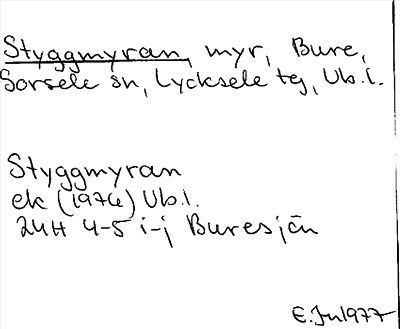 Styggmyran, myr, Bure,
Sorsele sn, Lycksele tg, Vb.l.
Styggmyran
ek (1974) Vb.l.
24H 4-5 i-j Buresjön
1977